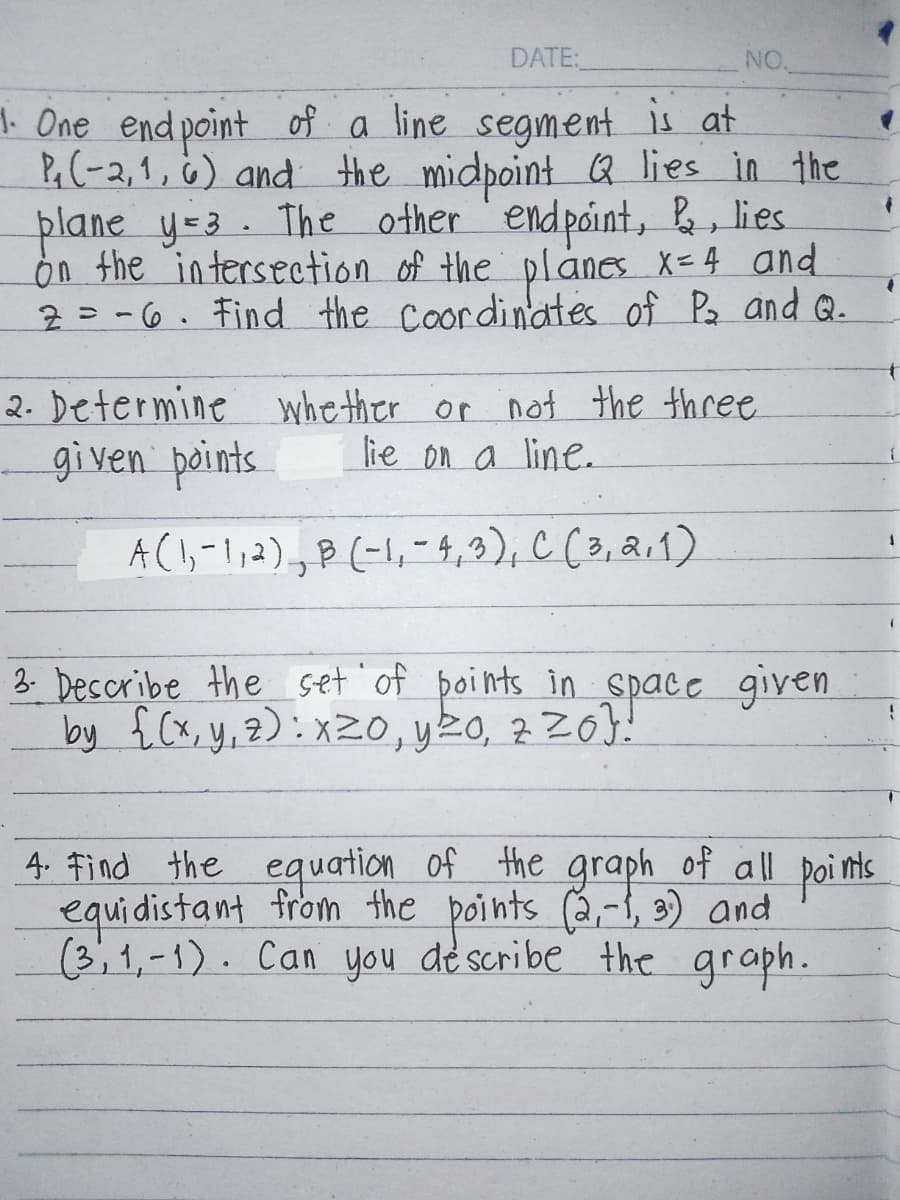 DATE: NO.
1. One endpoint of a line segment is at
P₁(-2,1,6) and the midpoint Q lies in the
plane y=3. The other endpoint, P₂, lies
on the intersection of the planes x=4 and
z = -6. Find the coordinates of P₂ and Q.
2. Determine whether or not the three
given points lie on a line.
A(1,-1,2), B(-1,-4,3), C(3,2,1)
3. Describe the set of points in space given
by {(x,y,z): x≥0, y≥0, z≥0}.
4. Find the equation of the graph of all points
equidistant from the points (2,-1,3) and
(3,1,-1). Can you describe the graph.